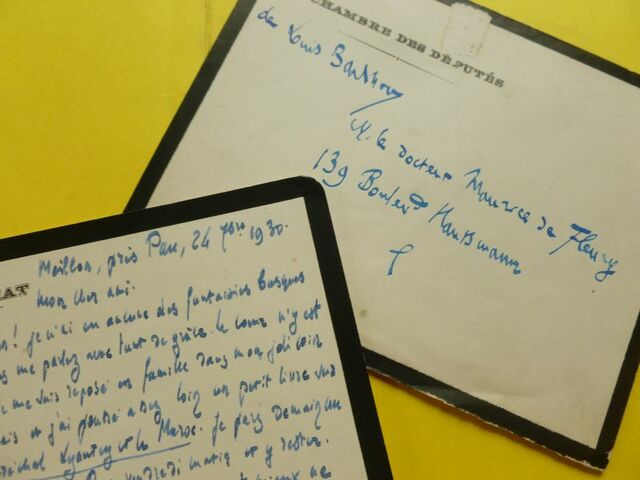 CHAMBRE DES DÉPUTÉS
de Louis Barthou
M. le docteur Maurice de Fleury
139 Boulevd Haussmann
Meillon, près Pau, 24 7bre 1930.
Mon cher ami.
! je n'ai eu aucune des fantaisies basques
me parlez avec tant de grâce. Le coeur n'y est
me suis reposé en famille dans mon joli coin
et j'ai poussé assez loin un petit livre sur
Lyautey et le Maroc. Je pars demain
vendredi matin et y rester